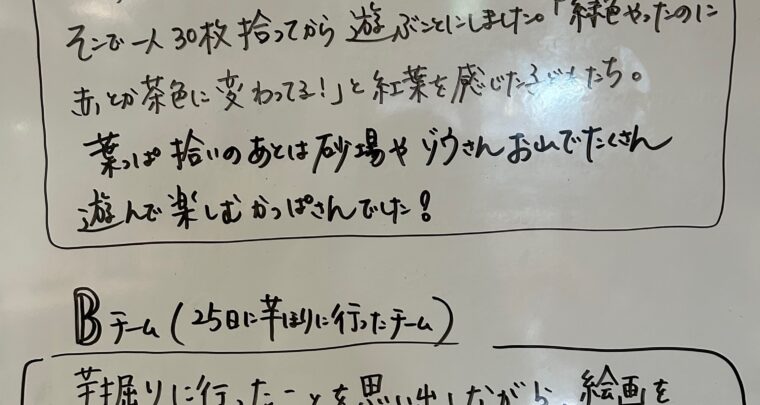 そこで一人30枚拾ってから遊ぶことにしました。「緑色やったのに
赤とか茶色に変わってる!」と紅葉を感じた子どもたち。
葉っぱ拾いのあとは砂場やゾウさんお山でたくさん
遊んで楽しむかっぱさんでした!
Bチーム(25日に芋ほりに行ったチーム)
芋掘りに行ったことを思い出しながら、絵画を